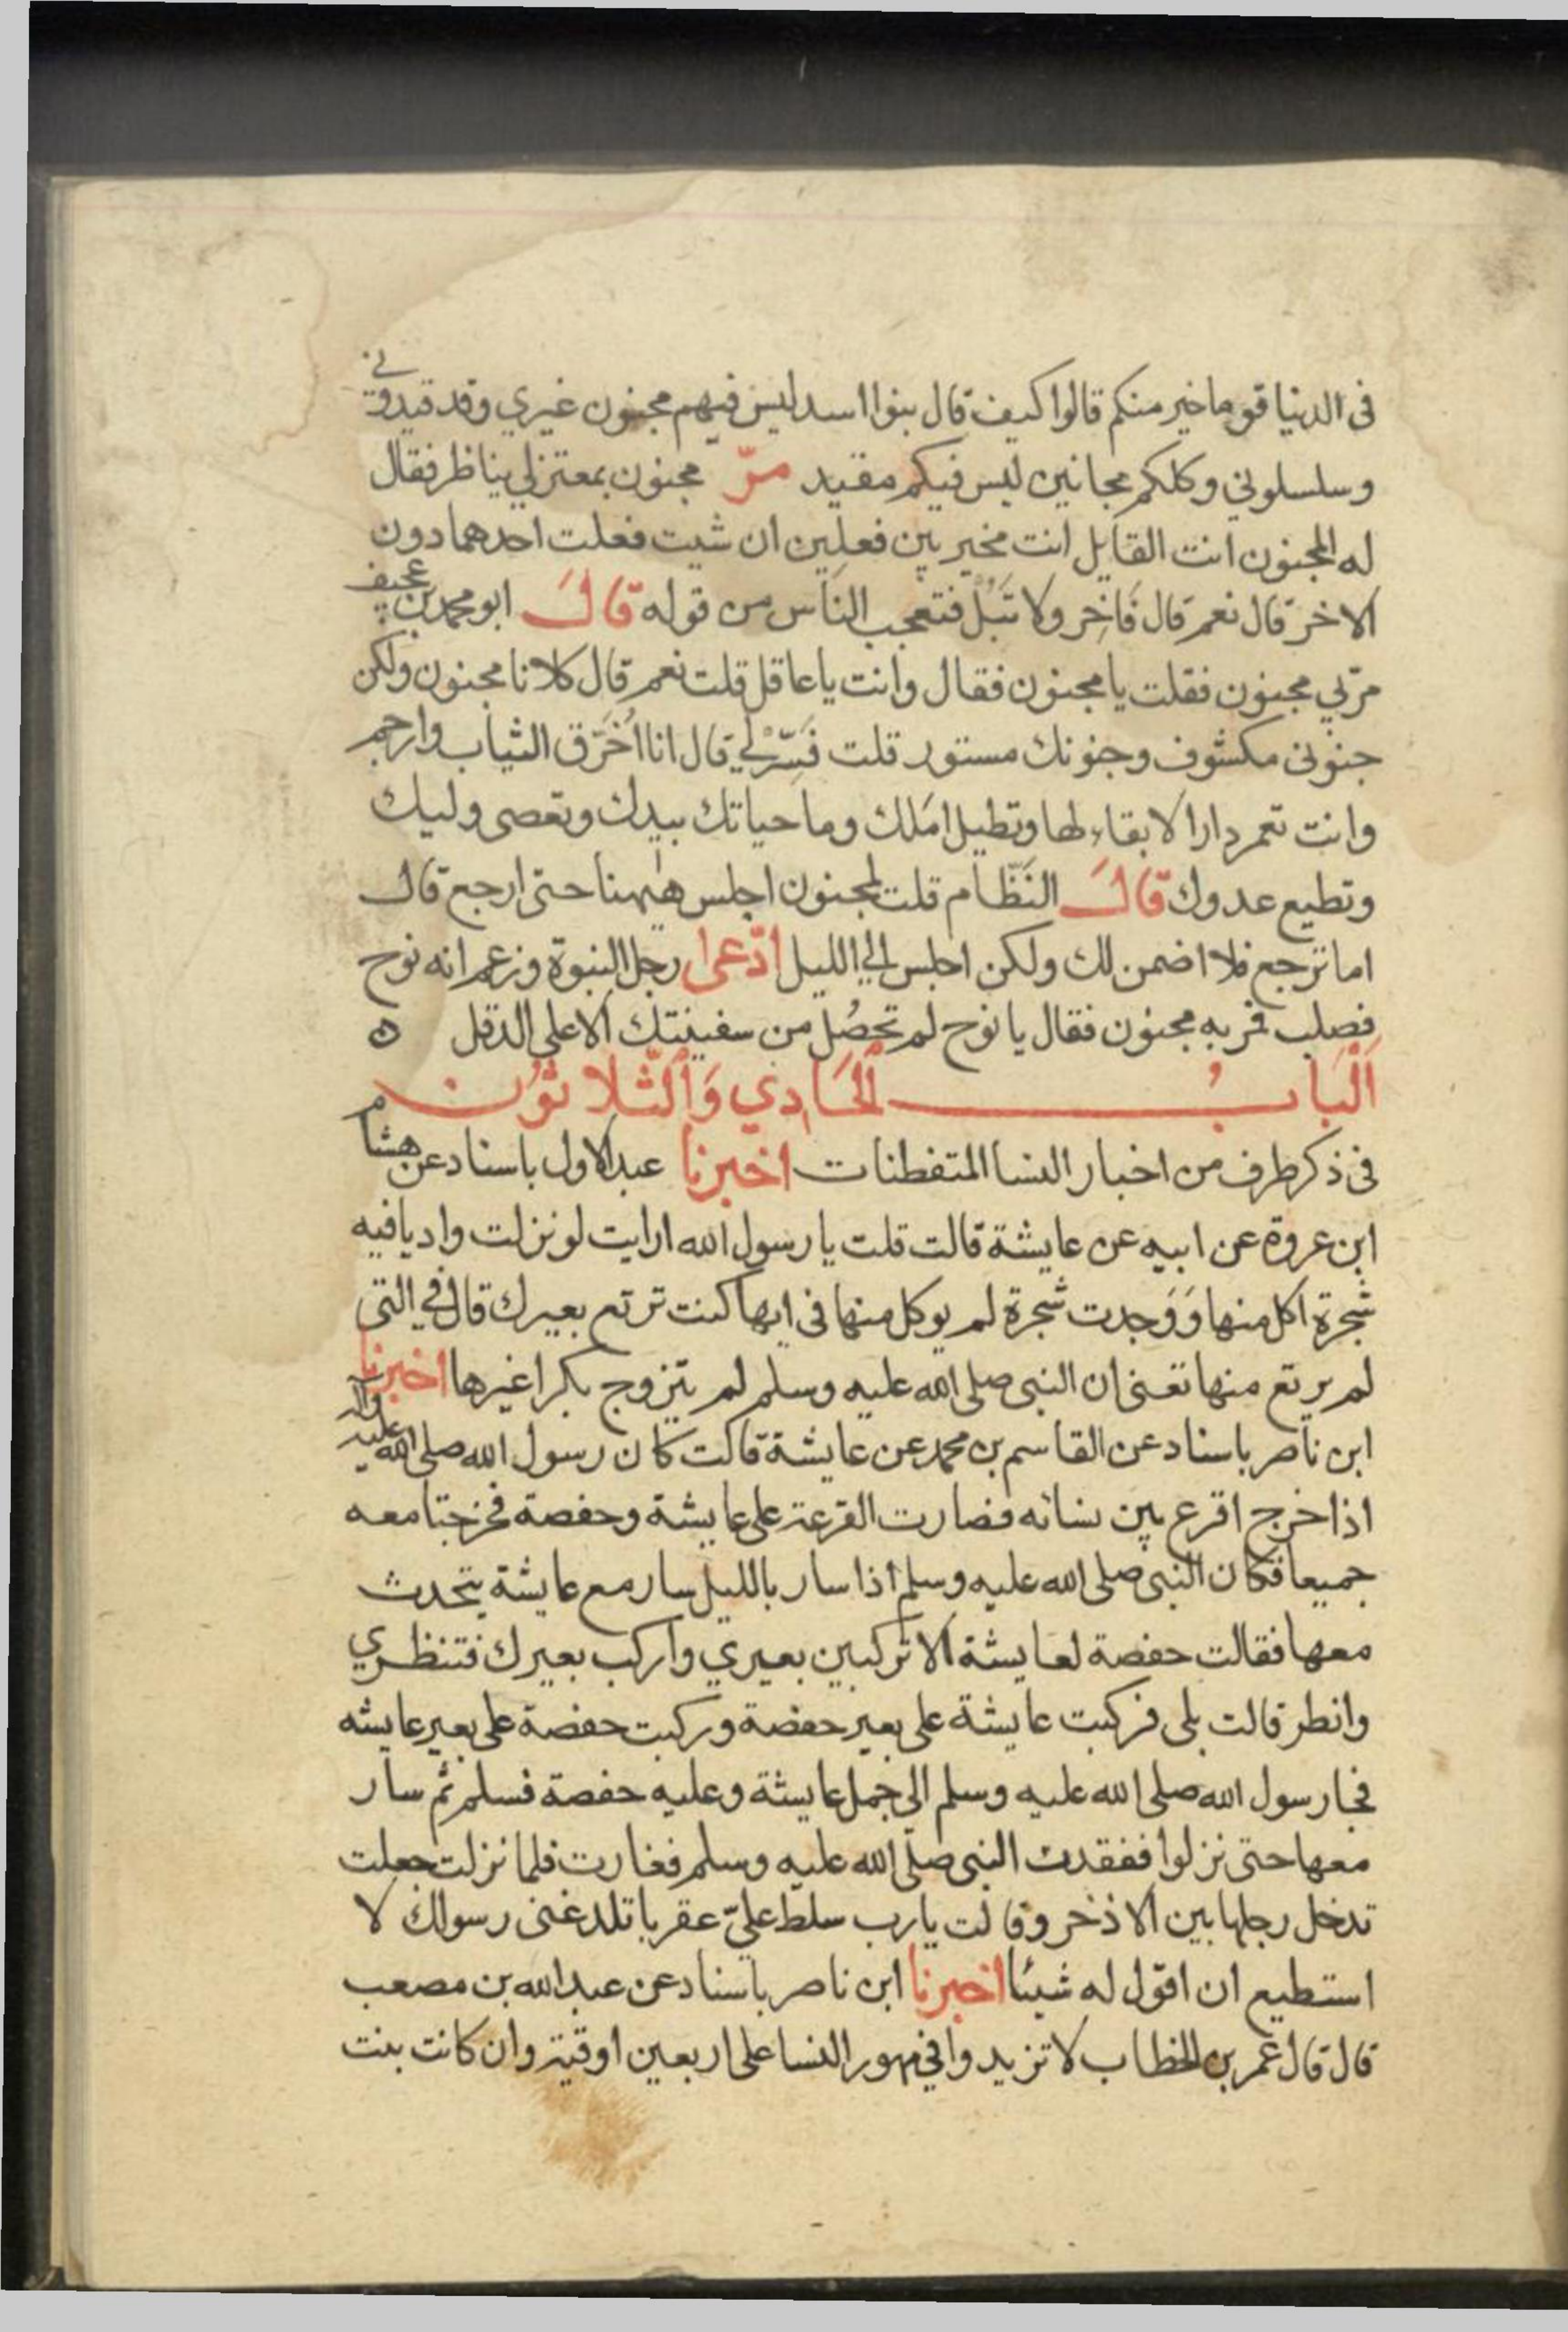 فى الدنيا قوما خير منكم قالوا كيف قال بنوا اسد ليس فيهم مجنون غيري وقد قيدوني
وسلسلوني وكلكم مجانين ليس فيكم مقيد مرّ مجنون بمعتزلي يناظر فقال
له المجنون انت القايل انت مخير بين فعلين ان شيت فعلت احدهما دون
الاخر قال نعم قال فَاخِر ولا تَبُلْ فتعجب الناس من قوله قَالَ ابو محمد بن عجيف
مرّ بي مجنون فقلت يا مجنون فقال وانت يا عاقل قلت نعم قال كلانا مجنون ولكن
جنونى مكشوف وجنونك مستور قلت فَسِّرْ لي قال انا اُخَرّق الثياب وارجم
وانت تعمر دارا لا بقاء لها وتطيل امَلك وما حياتك بيدك وتعصى وليك
وتطيع عدوك قَالَ النَظّام قلت لمجنون اجلس هٰيهنا حتى ارجع قال
اما ترجع فلا اضمن لك ولكن اجلس الي الليل ادّعىا رجل النبوة وزعم انه نوح
فصلب فمر به مجنون فقال يا نوح لم تحصُل من سفينتك الا على الدقل ه
اَلْبَابُ اَلْحَادِي وَاَلثَّلاثُون
فى ذكر طرف من اخبار النسا المتفطنات اخبرنا عبد الاول باسناد عن هشام
ابن عروة عن ابيه عن عايشة قالت قلت يا رسول الله ارايت لو نزلت واديا فيه
شجرة اكل منها وَوَجدت شجرة لم يوكل منها فى ايها كنت ترتع بعيرك قال في التى
لم يرتع منها تعنى ان النبى صلى الله عليه وسلم لم يتزوج بكرا غيرها اخبرنا
ابن ناصر باسناد عن القاسم بن محمد عن عايشة قالت كان رسول الله صلى الله عليه وآله
اذا خرج اقرع بين نسائه فصارت القرعة على عايشة وحفصة فخرجتا معه
جميعا فكان النبى صلى الله عليه وسلم اذا سار بالليل سار مع عايشة يتحدث
معها فقالت حفصة لعايشة الا تركبين بعيري واركب بعيرك فتنظري
وانظر قالت بلى فركبت عايشة على بعير حفصة وركبت حفصة على بعير عايشه
فجا رسول الله صلى الله عليه وسلم الى جمل عايشة وعليه حفصة فسلم ثم سار
معها حتى نزلوا ففقدت النبى صلى الله عليه وسلم فغارت فلما نزلت جعلت
تدخل رجلها بين الاذخر وقالت يا رب سلط عليّ عقربا تلدغنى رسولك لا
استطيع ان اقول له شيئا اخبرنا ابن ناصر باسناد عن عبد الله بن مصعب
قال قال عمر بن الخطاب لا تزيدوا في مهور النسا على اربعين اوقية وان كانت بنت